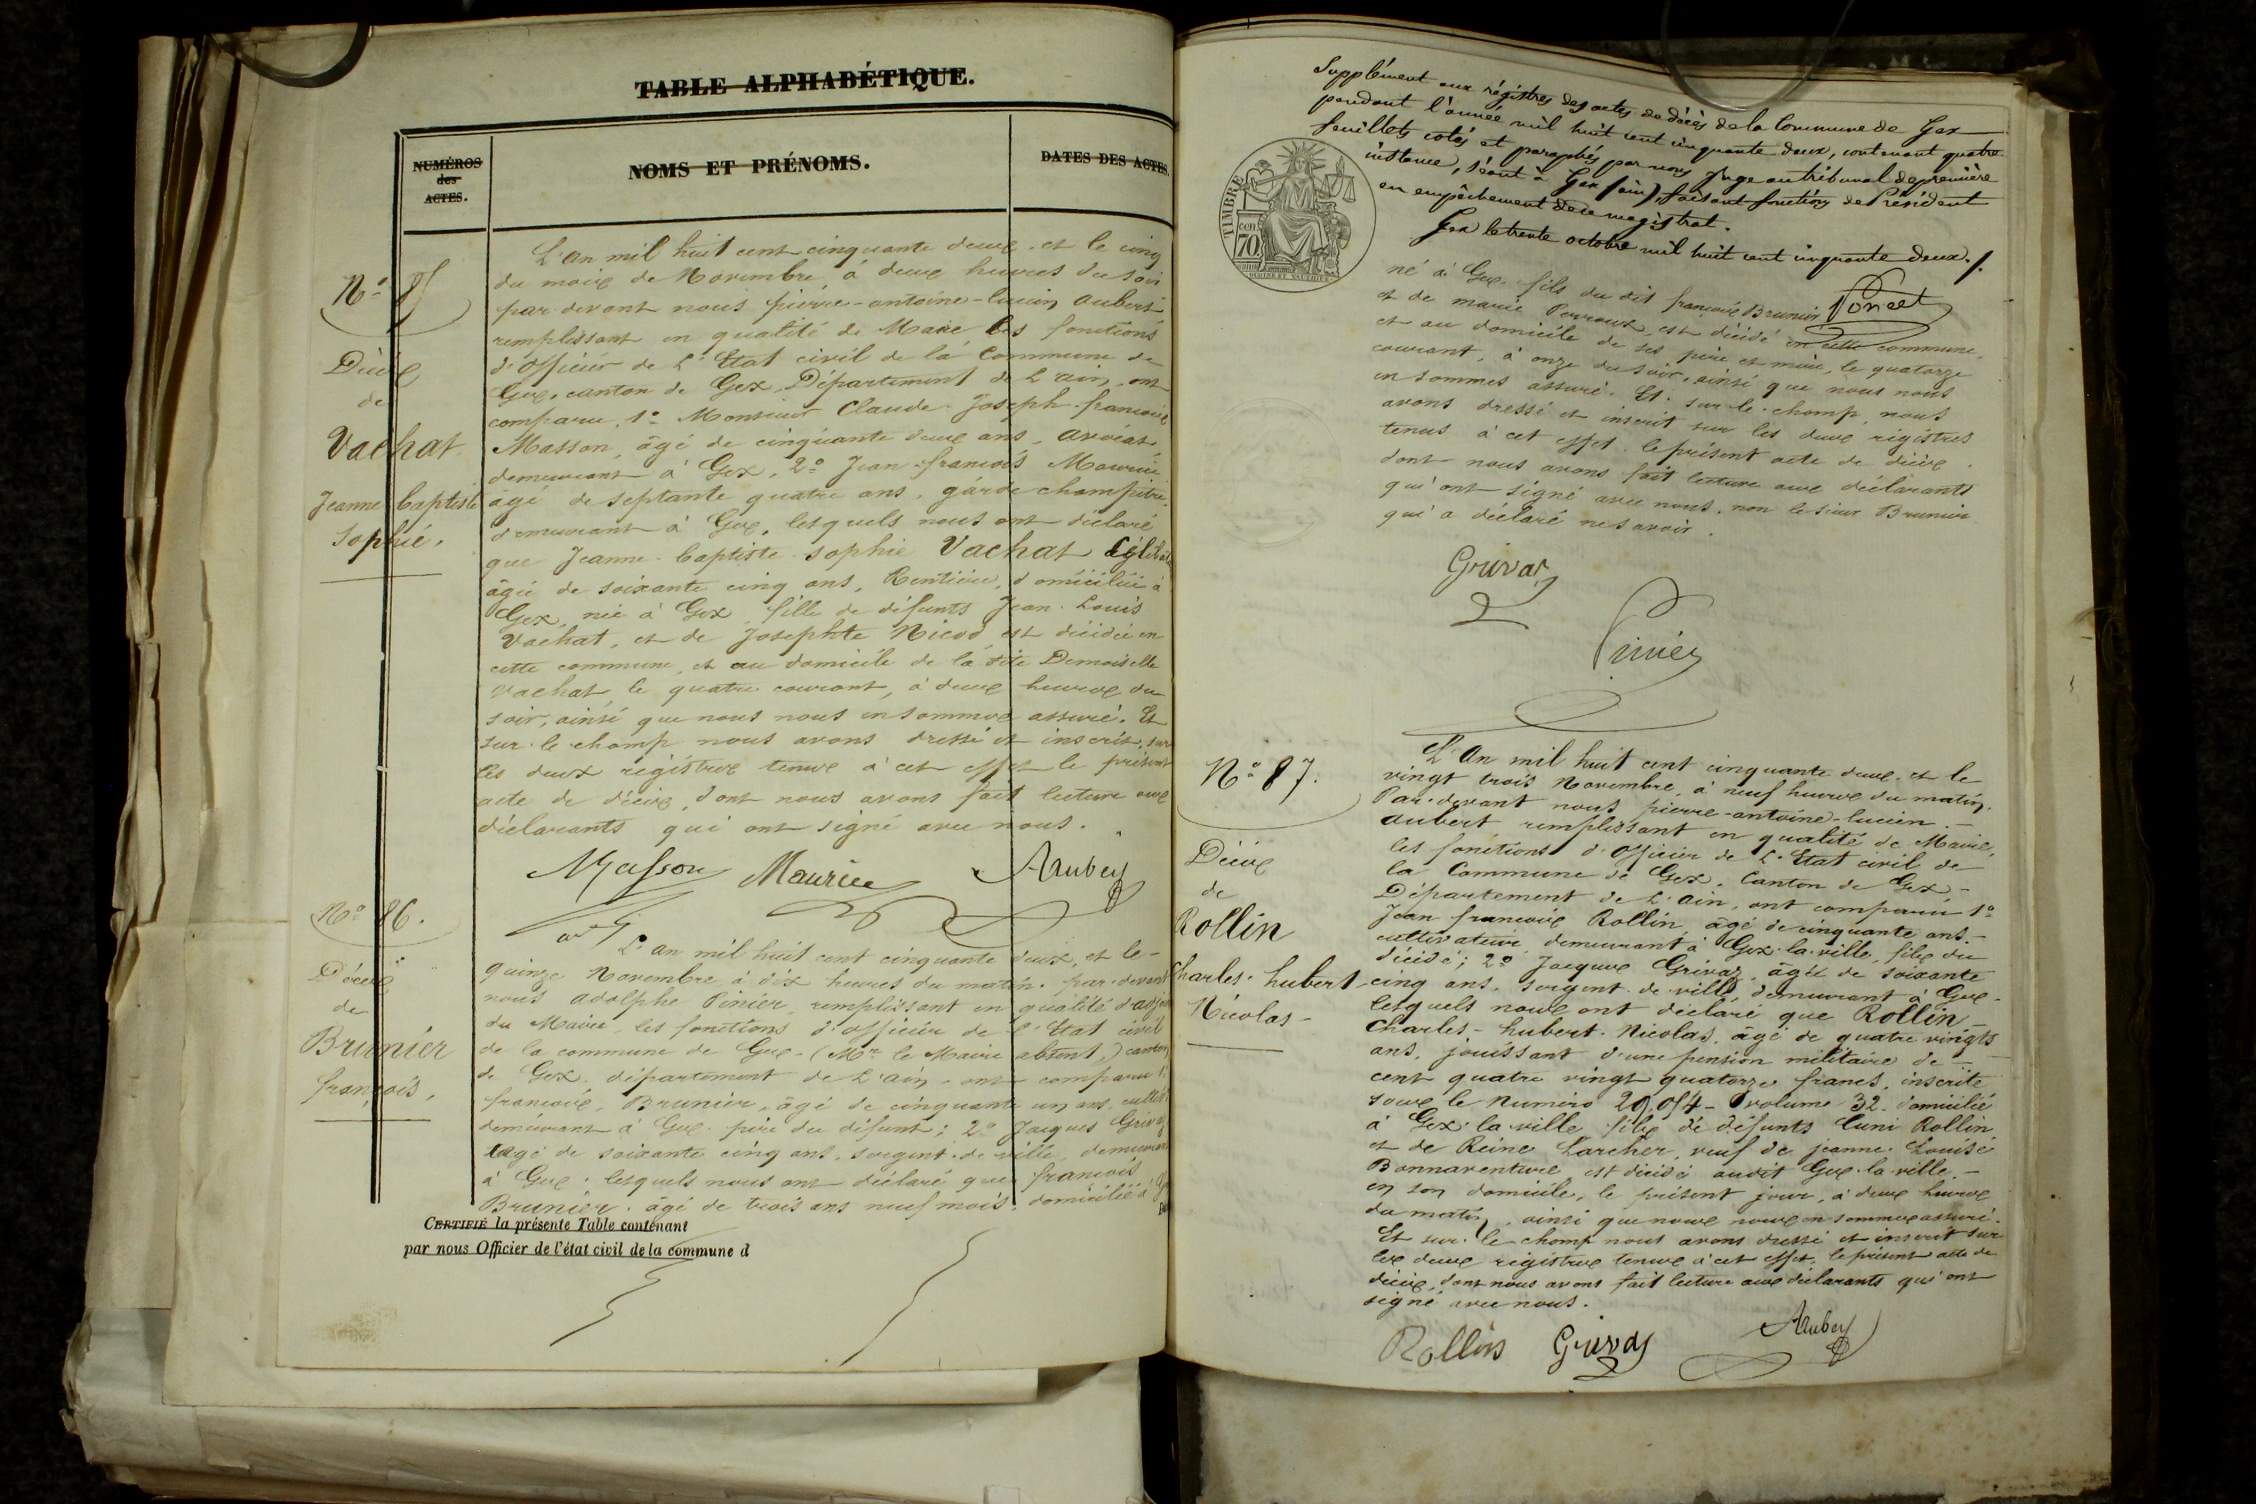 TABLE ALPHABÉTIQUE.
NUMÉROS
des
ACTES.
NOMS ET PRÉNOMS.
DATES DES ACTES.
N° 85
Décès
de
Vachat
Jeanne Baptiste
Sophie.
L'an mil huit cent cinquante deux, et le cinq
du mois de Novembre, à deux heures du soir
par devant nous pierre-antoine-lucien Aubert
remplissant en qualité de Maire les fonctions
d'officier de L'Etat civil de la Commune de
Gex, canton de Gex, Département de L'ain, ont
comparu, 1° Monsieur Claude Joseph françois
Masson, âgé de cinquante deux ans, avocat
demeurant à Gex, 2° Jean françois Maurice
âgé de septante quatre ans, garde champêtre
demeurant à Gex, lesquels nous ont déclaré
que Jeanne Baptiste Sophie Vachat Célibat
âgée de soixante cinq ans, Rentière, domiciliée à
Gex, née à Gex, fille de défunts Jean Louis
Vachat, et de Josephte Nicod est décédée en
cette commune, et au domicile de la dite Demoiselle
Vachat, le quatre courant, à deux heures du
soir, ainsi que nous nous en sommes assuré. Et
sur le champ nous avons dressé et inscrit, sur
les deux registres tenus à cet effet le présent
acte de décès, dont nous avons fait lecture aux
déclarants qui ont signé avec nous.
Masson Maurice Aubert
avt
N° 86.
Décès
de
Brunier
françois,
L'an mil huit cent cinquante deux, et le
quinze Novembre à dix heures du matin, par-devant
nous adolphe Pinier, remplissant en qualité d'adjoint
du Maire, les fonctions d'officier de l'Etat civil
de la commune de Gex (Mr le Maire absent,) canton
de Gex, département de L'ain, ont comparu 1°
françois, Brunier, âgé de cinquante un ans, cultiv
demeurant à Gex, père du défunt; 2° Jacques Grivaz
âgé de soixante cinq ans, sergent de ville, demeurant
à Gex; lesquels nous ont déclaré que françois
Brunier, âgé de trois ans neuf mois, domicilié à
CERTIFIÉ la présente Table contenant
par nous Officier de l'état civil de la commune d
Supplément aux régistres des actes de décès de la Commune de Gex
pendant l'année mil huit cent cinquante deux, contenant quatre
feuillets cotés et paraphés par nous Juge au tribunal de première
instance, séant à Gex (ain), faisant fonctions de Président
en empêchement de ce magistrat.
Gex le trente octobre mil huit cent cinquante deux./.
Poncet
TIMBRE
70
né à Gex, fils du dit françois Brunier
et de marie Perroux, est décédé en cette commune,
et au domicile de ses père et mère, le quatorze
courant, à onze du soir, ainsi que nous nous
en sommes assuré. Et sur le champ, nous
avons dressé et inscrit sur les deux régistres
tenus à cet effet le présent acte de décès
dont nous avons fait lecture aux déclarants
qui ont signé avec nous, non le sieur Brunier
qui a déclaré ne savoir.
Grivaz
Pinier
N° 87.
Décès
de
Rollin
Charles-hubert-
Nicolas-
L'An mil huit cent cinquante deux, et le
vingt trois Novembre, à neuf heures du matin.
Par-devant nous pierre-antoine-lucien
Aubert remplissant en qualité de Maire,
les fonctions d'officier de L'Etat civil de
la Commune de Gex, Canton de Gex
Département de L'ain, ont comparu 1°
Jean françois Rollin, âgé de cinquante ans,
cultivateur demeurant à Gex-la-ville, fils du
décédé; 2° Jacques Grivaz, âgé de soixante
cinq ans, sergent de ville, demeurant à Gex
lesquels nous ont déclaré que Rollin
Charles-hubert-Nicolas, âgé de quatre vingts
ans, jouissant d'une pension militaire de
cent quatre vingt quatorze francs, inscrite
sous le numéro 29,054 - volume 32, domicilié
à Gex-la ville fils de défunts Cuni Rollin
et de Reine Larcher, veuf de jeanne Louise
Bonnaventure, est décédé audit Gex-la-ville,
en son domicile, le présent jour, à deux heures
du matin, ainsi que nous nous en sommes assuré.
Et sur le champ nous avons dressé et inscrit sur
les deux registres tenus à cet effet, le présent acte de
décès, dont nous avons fait lecture aux déclarants qui ont
signé avec nous.
Rollin Grivaz Aubert